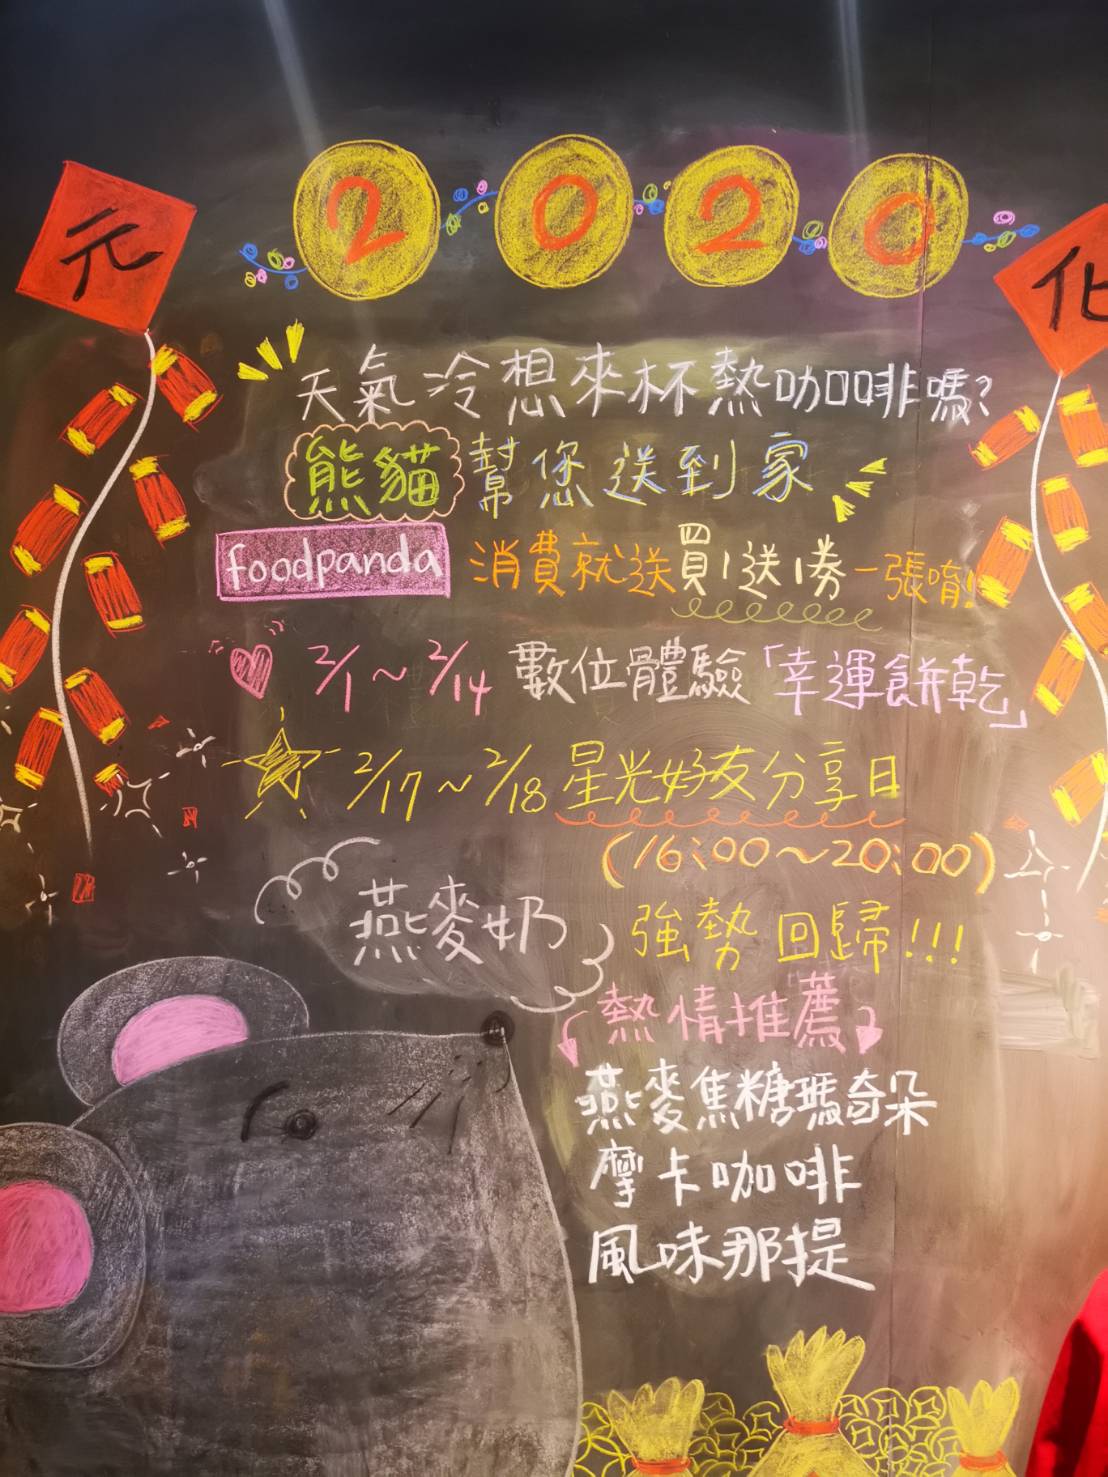 2020
元
化
天氣冷想來杯熱咖啡嗎?
熊貓幫您送到家
foodpanda 消費就送買1送1券一張唷!
2/1~2/14 數位體驗「幸運餅乾」
2/17~2/18 星光好友分享日
(16:00~20:00)
燕麥奶 強勢回歸!!!
熱情推薦
燕麥焦糖瑪奇朵
摩卡咖啡
風味那提